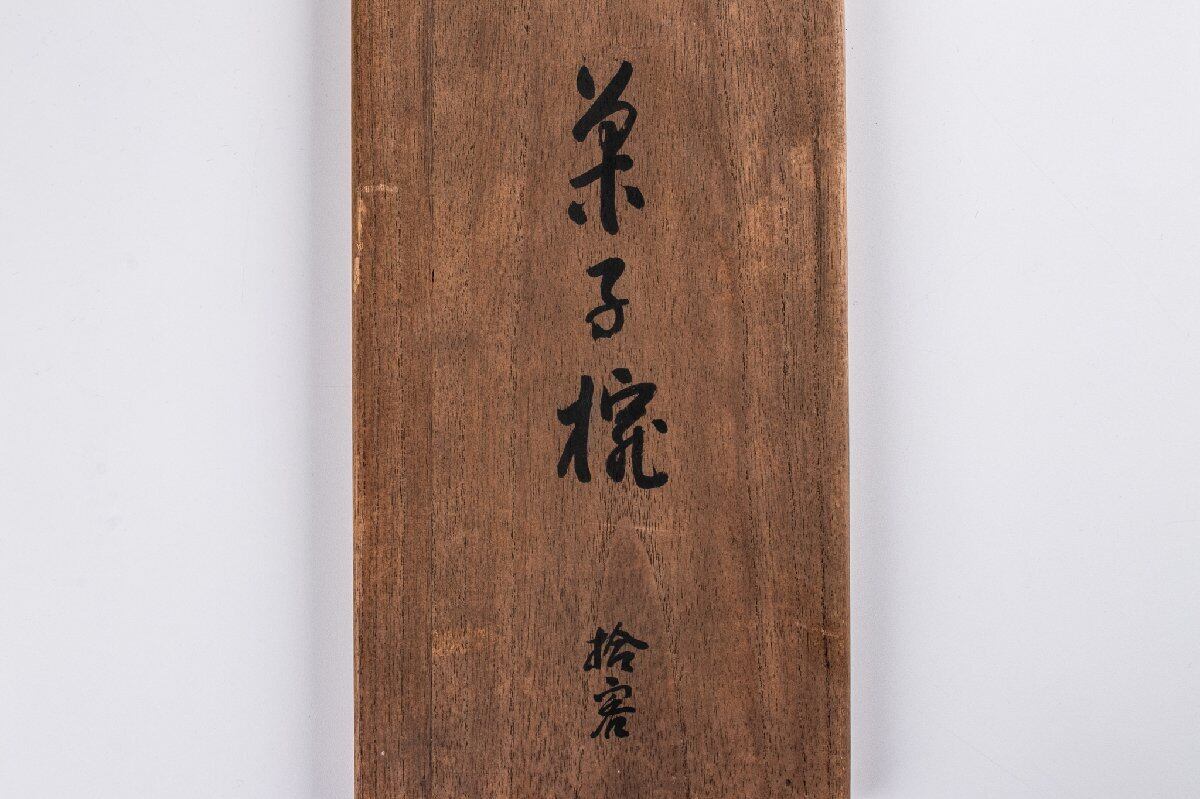 菓子椀
拾客